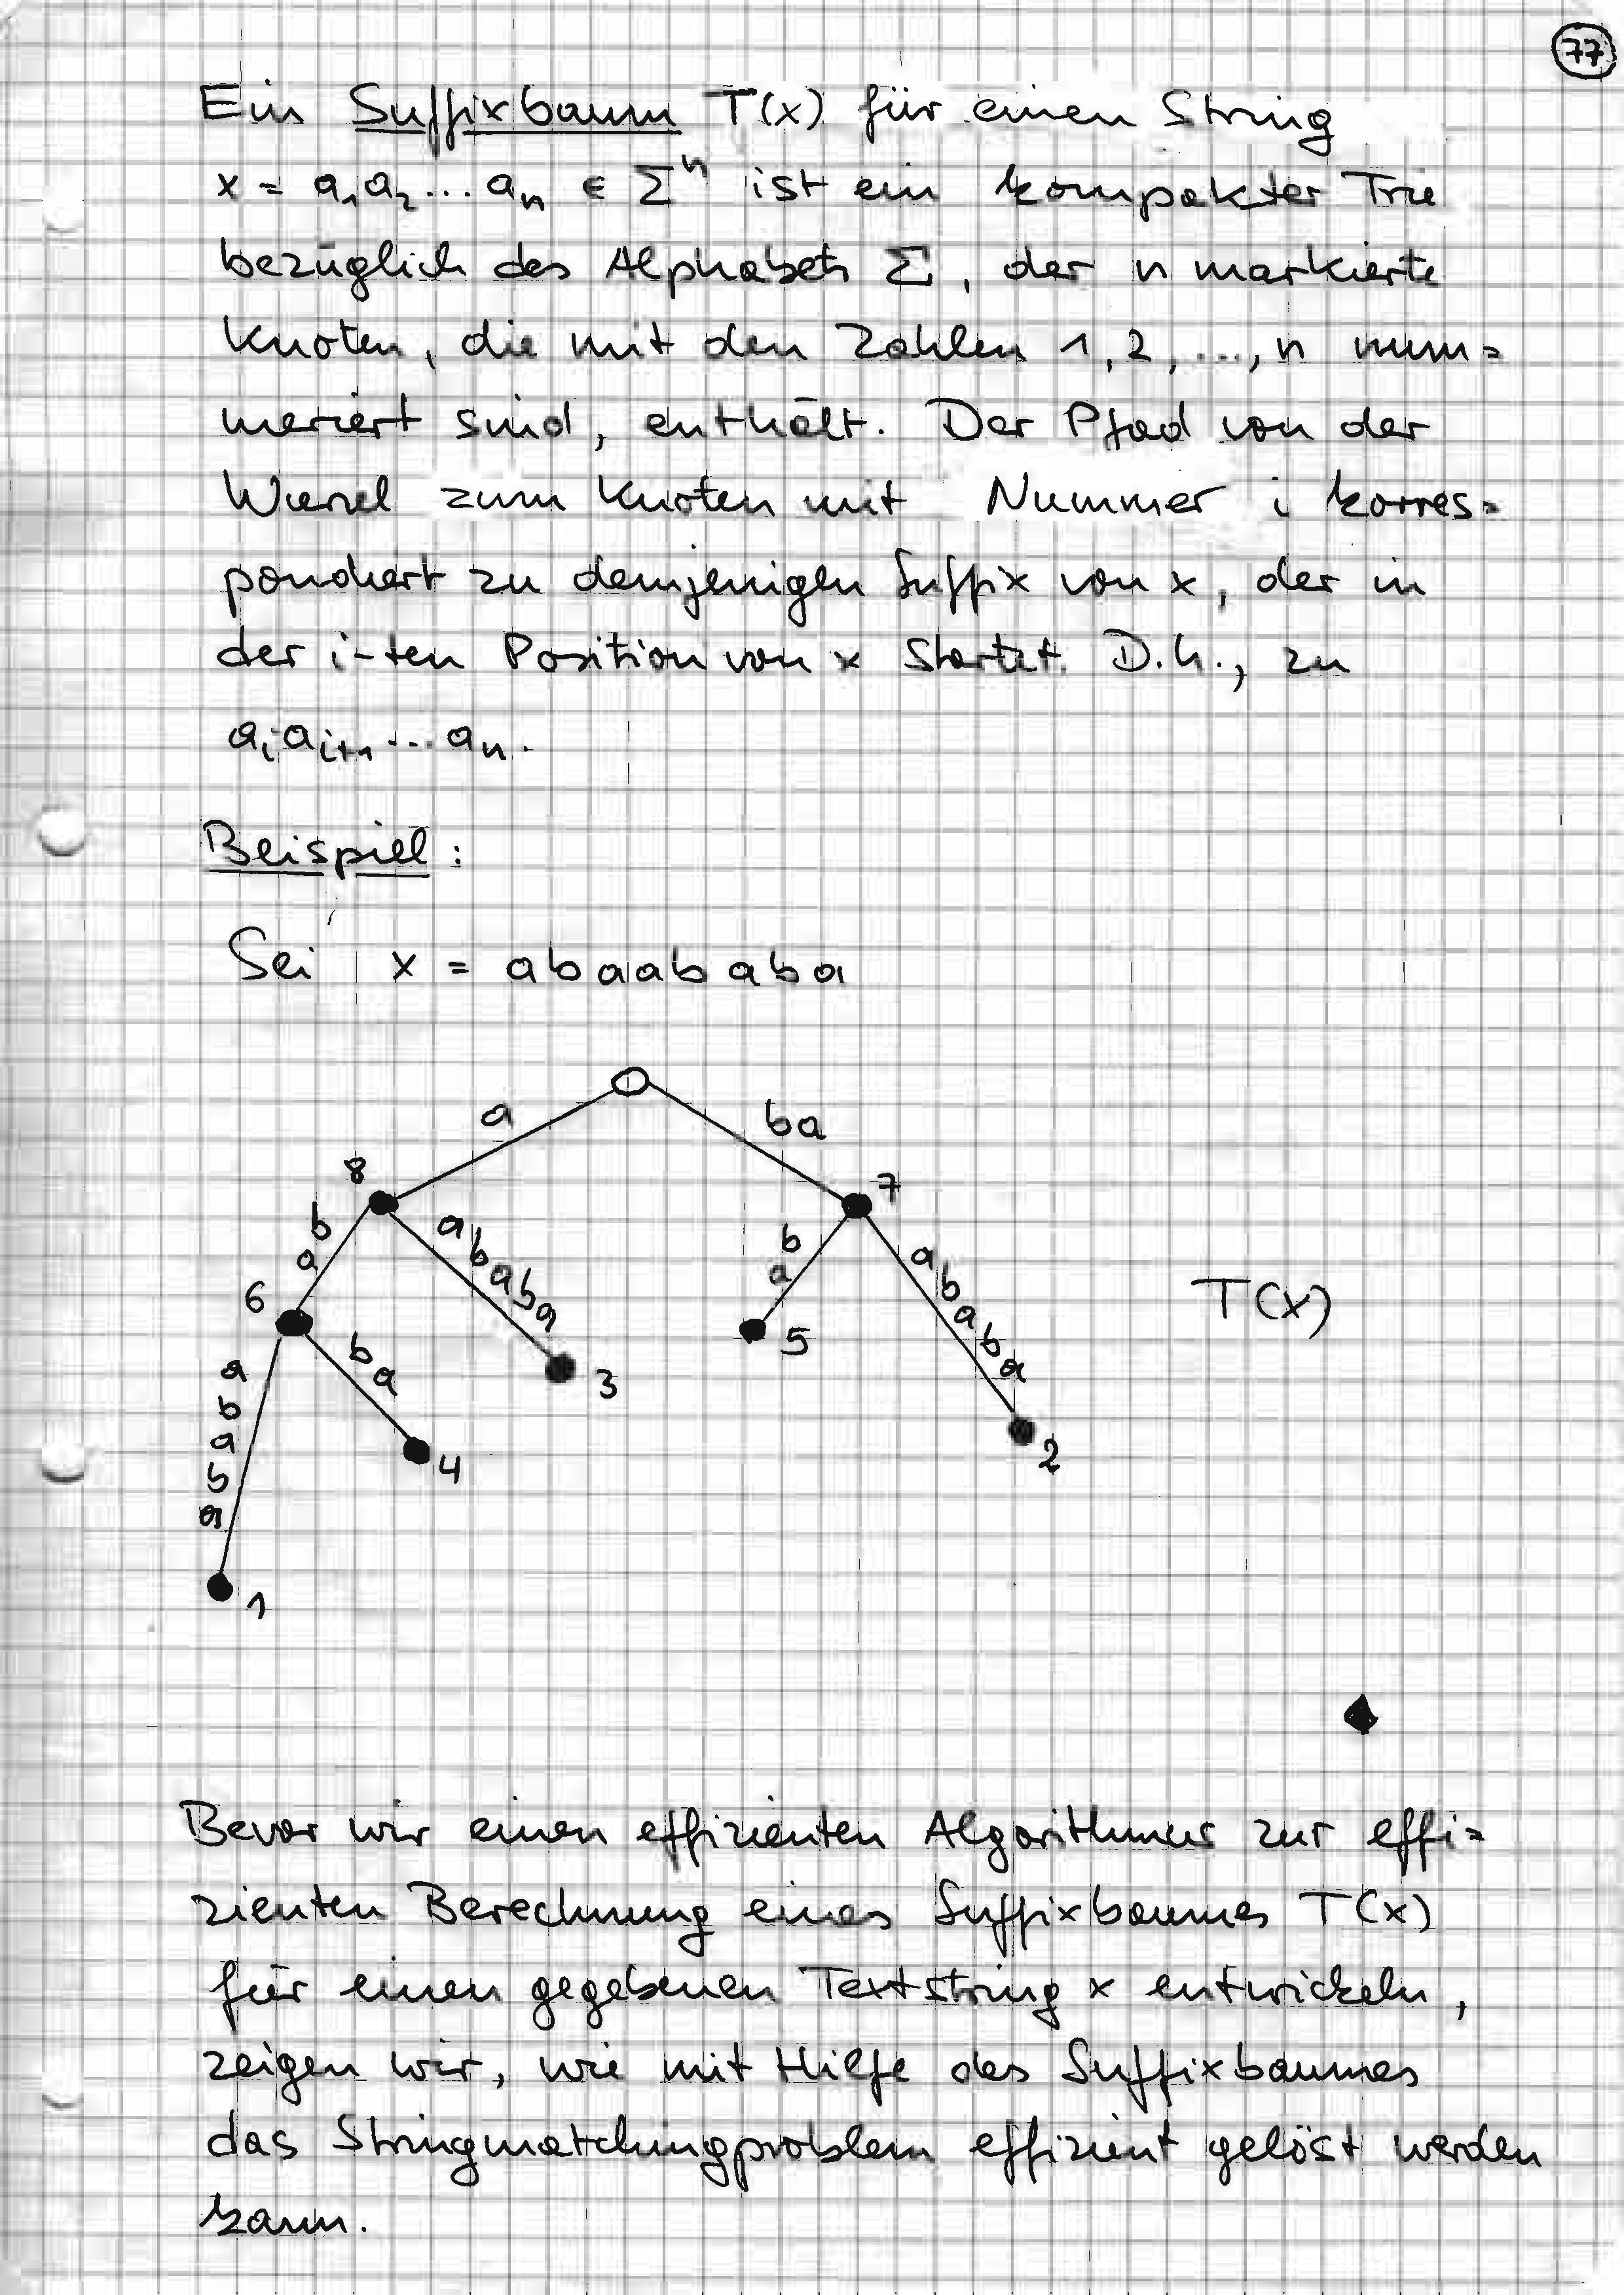 77
Ein Suffixbaum T(x) für einen String
x = a₁a₂...aₙ ∈ Σⁿ ist ein kompakter Trie
bezüglich des Alphabets Σ, der n markierte
Knoten, die mit den Zahlen 1,2,...,n num=
meriert sind, enthält. Der Pfad von der
Wurzel zum Knoten mit Nummer i korres=
pondiert zu demjenigen Suffix von x, der in
der i-ten Position von x startet. D.h., zu
aᵢaᵢ₊₁...aₙ.
Beispiel:
Sei x = abaababa
a
ba
8
7
b
a
ababa
b
a
ababa
T(x)
6
5
3
ba
ababa
2
4
1
Bevor wir einen effizienten Algorithmus zur effi=
zienten Berechnung eines Suffixbaumes T(x)
für einen gegebenen Textstring x entwickeln,
zeigen wir, wie mit Hilfe des Suffixbaumes
das Stringmatchingproblem effizient gelöst werden
kann.